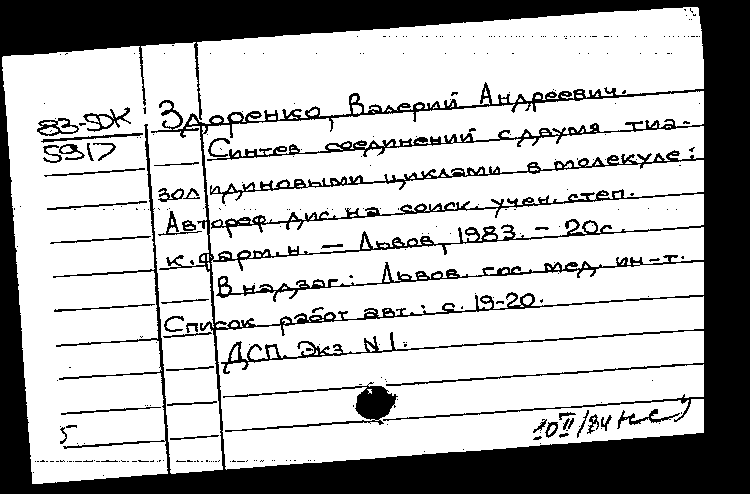 83-5ДК
5917
Здоренко, Валерий Андреевич.
Синтез соединений с двумя тиа-
золидиновыми циклами в молекуле:
Автореф. дис. на соиск. учен. степ.
к. фарм. н. — Львов, 1983. - 20 с.
В надзаг.: Львов. гос. мед. ин-т.
Список работ авт.: с. 19-20.
ДСП. Экз. N 1.
5
10 II/84